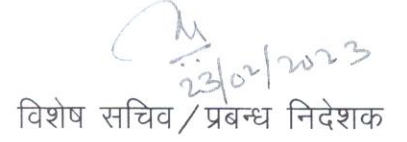 23/02/2023
विशेष सचिव/प्रबन्ध निदेशक